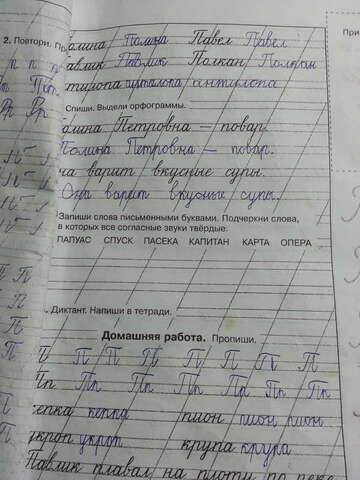 олина Полина Павел Павел
2. Повтори.
авлик Павлик Полкан Полкан
нтилопа антилопа антилопа
Спиши. Выдели орфограммы.
олина Петровна – повар.
Полина Петровна – повар.
на варит вкусные супы.
Она варит вкусные супы.
Запиши слова письменными буквами. Подчеркни слова,
в которых все согласные звуки твёрдые.
ПАПУАС СПУСК ПАСЕКА КАПИТАН КАРТА ОПЕРА
Диктант. Напиши в тетради.
Домашняя работа. Пропиши.
П П П П П П П П
Пп Пп Пп Пп Пп Пп Пп
репка репка пион пион пион
укроп укроп крупа крупа
Павлик плавал на плоту по реке